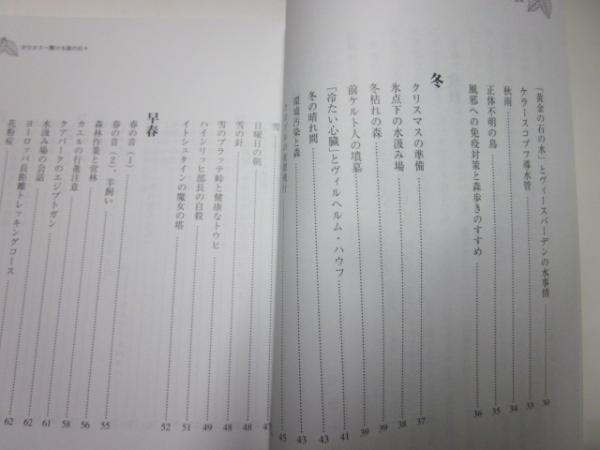 「黄金の石の水」とヴィースバーデンの水事情 30
ケラースコプフ導水管 33
秋雨 34
正体不明の鳥 35
風邪への免疫対策と森歩きのすすめ 36
冬
クリスマスの準備 37
氷点下の水汲み場 38
冬枯れの森 39
前ケルト人の墳墓 39
「冷たい心臓」とヴィルヘルム・ハウフ 41
冬の晴れ間 43
環境汚染と森 43
の夜間飛行 45
雪 47
日曜日の朝 48
雪の針 48
雪のプラッテ峠と健康なトウヒ 49
ハインリッヒ部長の自殺 51
イトシュタインの魔女の塔 52
早春
春の音（1）
春の音（2）、羊飼い
森林作業と営林 55
カエルの行進注意 56
クアパークのエジプトガン 58
水汲み場の会話 61
ヨーロッパ長距離トレッキングコース 62
花粉症 62